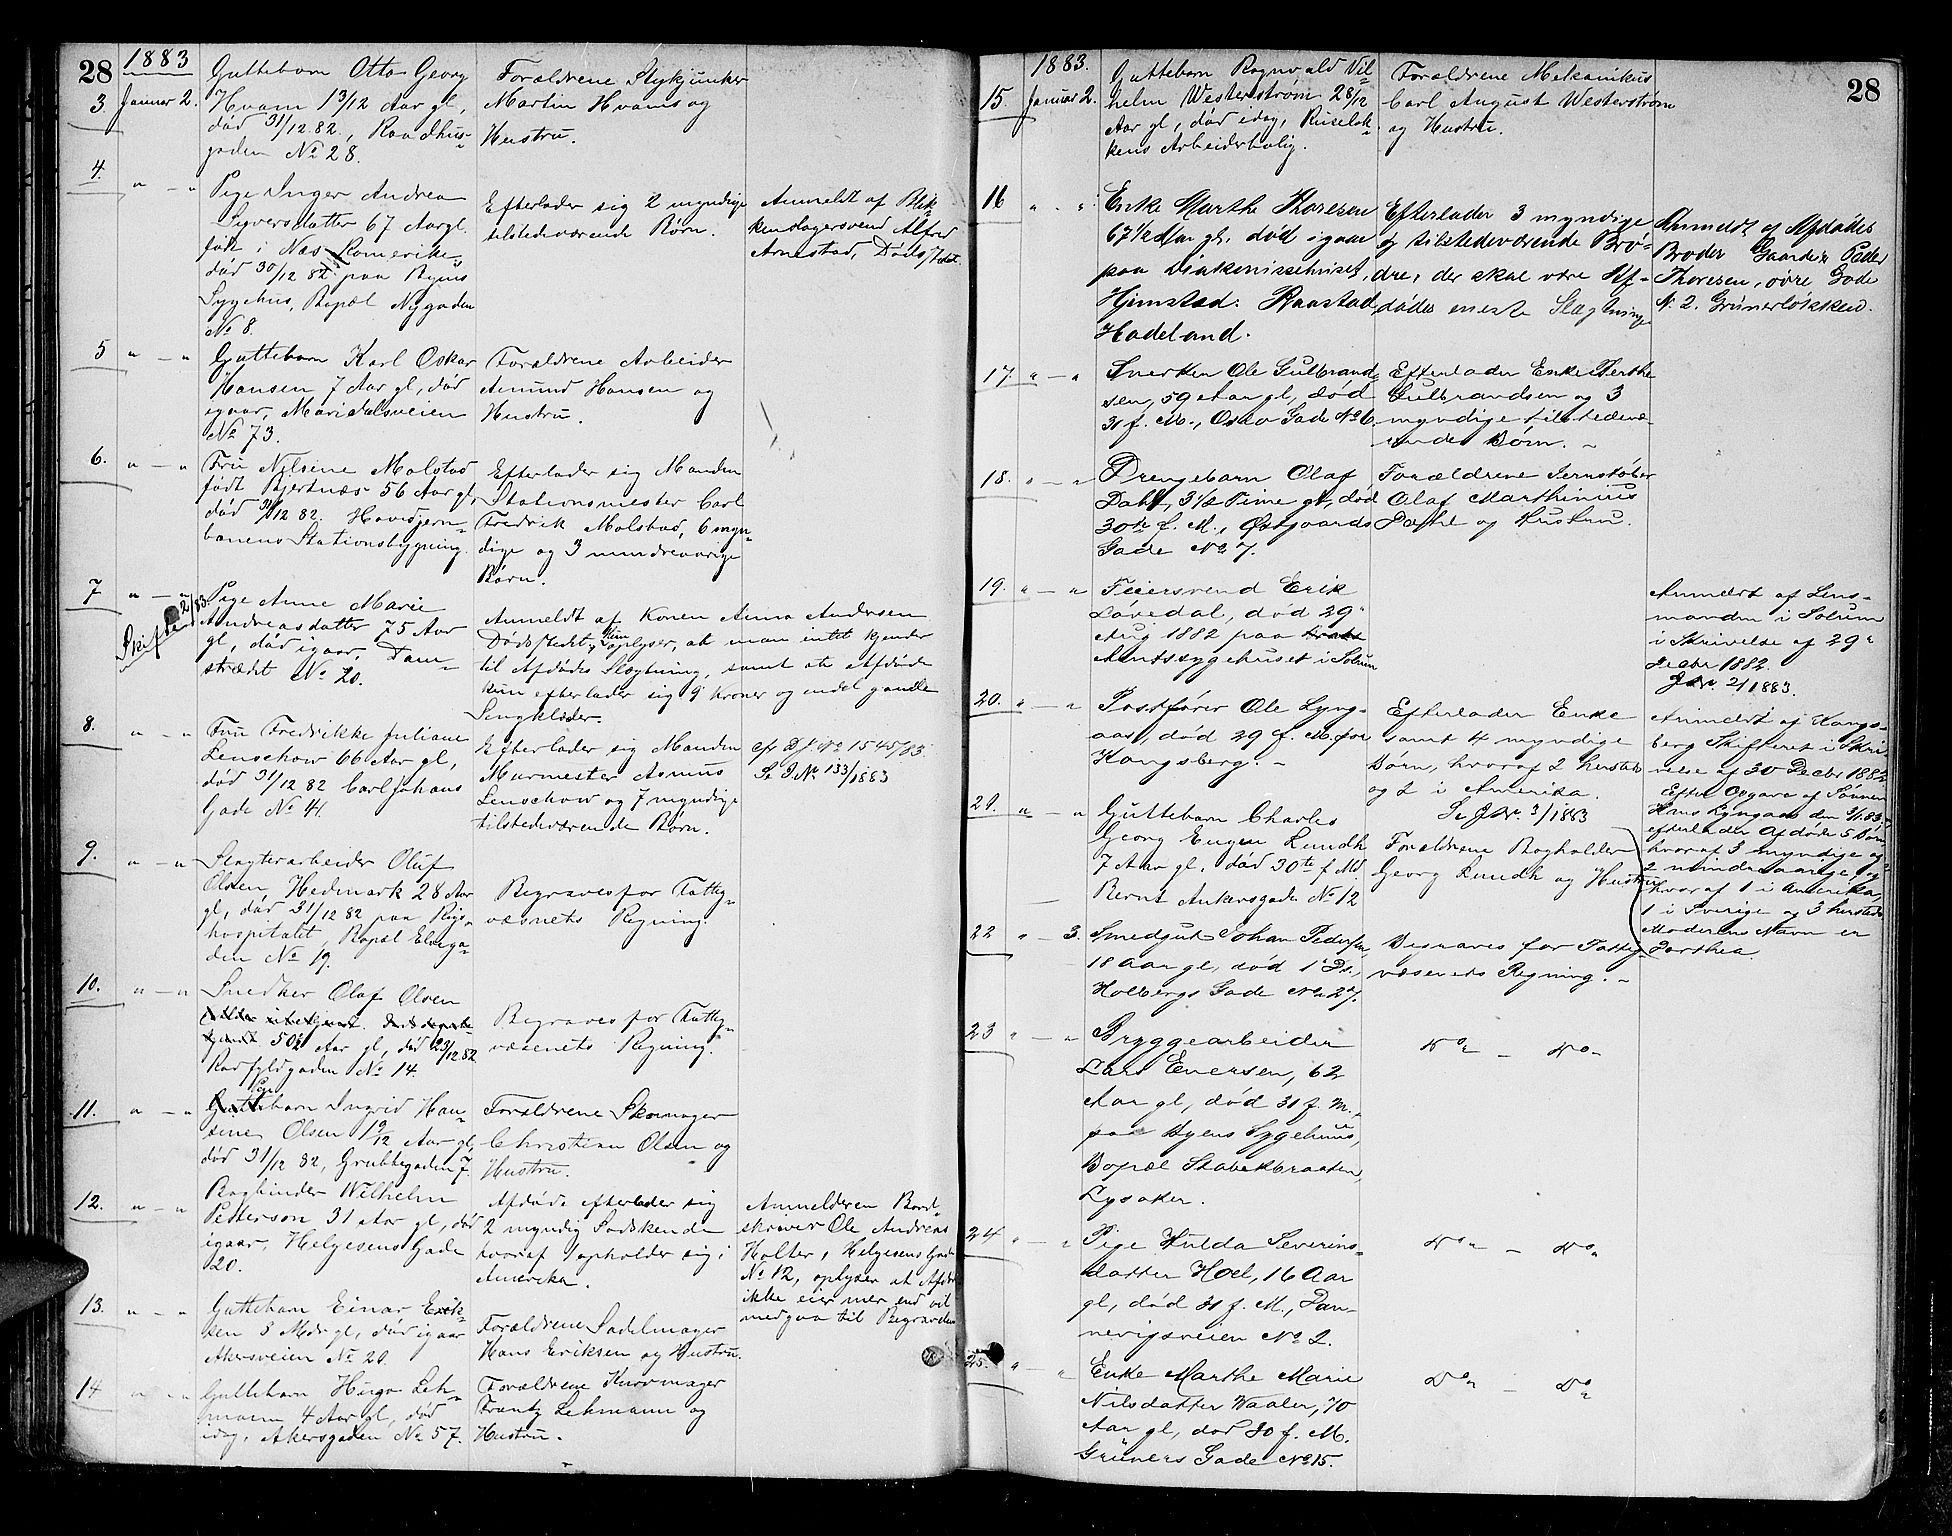 28
1883
3. Januar 2.
Guttebarn Otto Georg
Hvam 1 3/12 Aar gl,
død 31/12 82., Raadhus-
gaden No 28.
Forældrene
Martin Hvams og
Hustru.
4. " — "
Pige Inger Andrea
Syversdatter 67 Aar gl.
født i Næs Romerike
død 30/12 82 paa Byens
Sygehus, Bopæl Nygaden
No 8.
Efterlader sig 2 myndige
tilstedeværende Børn.
Anmeldt af Blik-
kenslagersvend Alfred
Arnestad, Dødsstedet.
5 " — "
Guttebarn Karl Oskar
Hansen 7 Aar gl, død
igaar, Maridalsveien
No 73.
Forældrene Arbeider
Amund Hansen og
Hustru.
6. " — "
Fru Nilsine Molstad
født Bjertnæs 56 Aar gl,
død 31/12 82. Hovedjern-
banens Stationsbygning.
Efterlader sig Manden
Stationsmester Carl
Fredrik Molstad, 6 myn-
dige og 3 umdreaarige
Børn.
7 " — "
2/83.
Pige Anne Marie
Andreasdatter 75 Aar
gl, død igaar, Dam-
strædet No 20.
Anmeldt af Konen Anna Andersen
Dødsstedet, hun oplyser, at man intet kjender
til Afdødes Slægtning, samt at Afdøde
kun efterlader sig 9 Kroner og endel gamle
Sengklæder.
8. " — "
Fru Fredrikke Juliane
Lenschow 66 Aar gl,
død 31/12 82 Carl Johans
Gade No 41.
Efterlader sig Manden
Murmester Asmus
Lenschow og 7 myndige
tilstedeværende Børn.
cfr D.J. No 1545/83.
Se J No 133/1883
9. " — "
Slagterarbeider Oluf
Olsen, Hedmark 28 Aar
gl, død 31/12 82 paa Rigs-
hospitalet, Bopæl Elvega-
den No 19.
Begraves for Fattig-
væsnets Regning.
10. " — "
Snedker Olaf Olsen
50 1/2 Aar gl, død 23/12 82
Rørfyldgaden No 14.
Begraves for Fattig-
væsenets Regning.
11. " — "
Pige
Guttebarn Ingrid Han-
sine Olsen 1 9/12 Aar gl,
død 31/12 82, Grubbegaden 7.
Forældrene Skomager
Christian Olsen og
Hustru.
12. " — "
Bogbinder Wilhelm
Petterson 31 Aar gl, død
igaar, Helgesens Gade
20.
Afdøde efterlader sig
2 myndig Sødskende
hvoraf 1 opholder sig i
Amerika.
Anmelderen Bord-
skriver Ole Andreas
Holter, Helgesens Gade
No 12, oplyser at Afdøde
ikke eier mer end vil
medgaa til Begravelsen
13. " — "
Guttebarn Einar Erik-
sen 8 Mdr gl, død igaar
Akersveien No 20.
Forældrene Sadelmager
Hans Eriksen og Hustru.
14 " — "
Guttebarn Hugo Leh-
mann 4 Aar gl, død
idag, Akersgaden No 57.
Forældrene Kurvmager
Frantz Lehmann og
Hustru.
28
1883.
15. Januar 2.
Guttebarn Rognvald Vil-
helm Westerstrøm 2 8/12
Aar gl, død idag, Ruseløk-
kens Arbeiderbolig.
Forældrene Mekanikus
Carl August Westerstrøm
og Hustru.
16 " - "
Enke Marthe Thoresen
67 1/2 Aar gl, død igaar
paa Diakonissehuset,
Hjemsted: Raastad
Hadeland.
Efterlader 3 myndige
og tilstedeværende Brø-
dre, der skal være Af-
dødes eneste Slægtninge
Anmeldt af Afdødes
Broder Gaardbr. Peder
Thoresen, øvre Gade
N. 2. Grünerløkken.
17. " — "
Snerker Ole Gulbrand-
sen, 59 Aar gl, død
31 f. M., Oslo Gade No 6.
Efterlader Enke Berthe
Gulbrandsen og 3
myndige tilstedevæ-
rende Børn. -
18. " — "
Drengebarn Olaf
Dahl, 3 1/2 Time gl, død
30te f. M., Østgaards
Gade No 7.
Forældrene Jernstøber
Olaf Marthinius
Dahl og Hustru.
19. " — "
Feiersvend Erik
Løvedal, død 29
Aug 1882 paa
Amtssygehuset i Solum
Anmeldt af Lens-
manden i Solum
i Skrivelse af 29
Decbr 1882.
J Nr. 2/1883.
20. " — "
Postfører Ole Lyng-
aas, død 29 f. M. for
Kongsberg. -
Efterlader Enke
samt 4 myndige
Børn, hvoraf 2 hersteds
og 2 i Amerika.
Se J Nr. 3/1883
Anmeldt af Kongs-
berg Skifteret i Skri-
velse af 30 Decbr 1882
Efter Opgave af Sønnen
Hans Lyngaas den 4/1 83
efterlader Afdøde 5 Børn
hvoraf 3 myndige og
2 mindreaarige og
hvoraf 1 i Amerika,
1 i Sverige og 3 hersteds
Moderens Navn er
Dorthea
21. " — "
Guttebarn Charles
Georg Eugen Lundh
7 Aar gl, død 30te f. Md
Bernt Ankersgade No 12
Forældrene Bogholder
Georg Lundh og Hustru
22 " — 3.
Smedgut Johan Pedersen,
18 Aar gl, død 1' Ds.,
Holbergs Gade No 27.
Begraves for Fattig-
væsenets Regning. -
23 " — "
Bryggearbeider
Lars Evensen, 62
Aar gl, død 31 f. M.,
paa Byens Sygehuus,
Bopæl Stabekbraaten,
Lysaker.
Do — Do
24 " — "
Pige Hulda Severins-
datter Hoel, 16 Aar
gl, død 31 f. M., Dan-
nevigsveien No 2.
Do — Do
25. " — "
Enke Marthe Marie
Nilsdatter Waaler, 70
Aar gl, død 30 f. M.
Grüners Gade No 15.
Do — Do